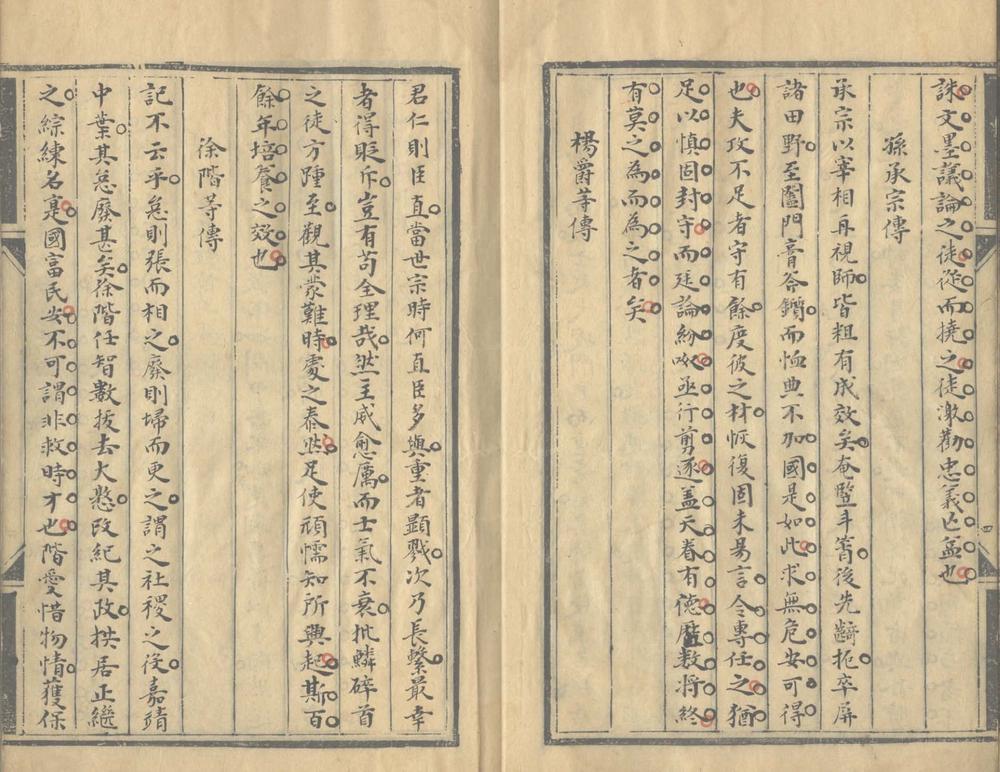 誅文墨議論之徒從而撓之徒激勸忠義亡益也
孫承宗傳
承宗以宰相再視師皆粗有成效矣奄豎斗筲後先齮扼卒屏
諸田野至闔門膏斧鑕而恤典不加國是如此求無危安可得
也夫攻不足者守有餘度彼之材恢復固未易言令專任之猶
足以慎固封守而廷論紛呶亟行剪逐蓋天眷有德氣數將終
有莫之為而為之者矣
楊爵等傳
君仁則臣直當世宗時何直臣多歟重者顯戮次乃長繫最幸
者得貶斥豈有苟全理哉然主威愈厲而士氣不衰批鱗碎首
之徒方踵至觀其蒙難時處之泰然足使頑懦知所興起斯百
餘年培養之效也
徐階等傳
記不云乎怠則張而相之廢則埽而更之謂之社稷之役嘉靖
中葉其怠廢甚矣徐階任智數拔去大憝改紀其政拱居正繼
之綜練名寔國富民安不可謂非救時才也階愛惜物情獲保